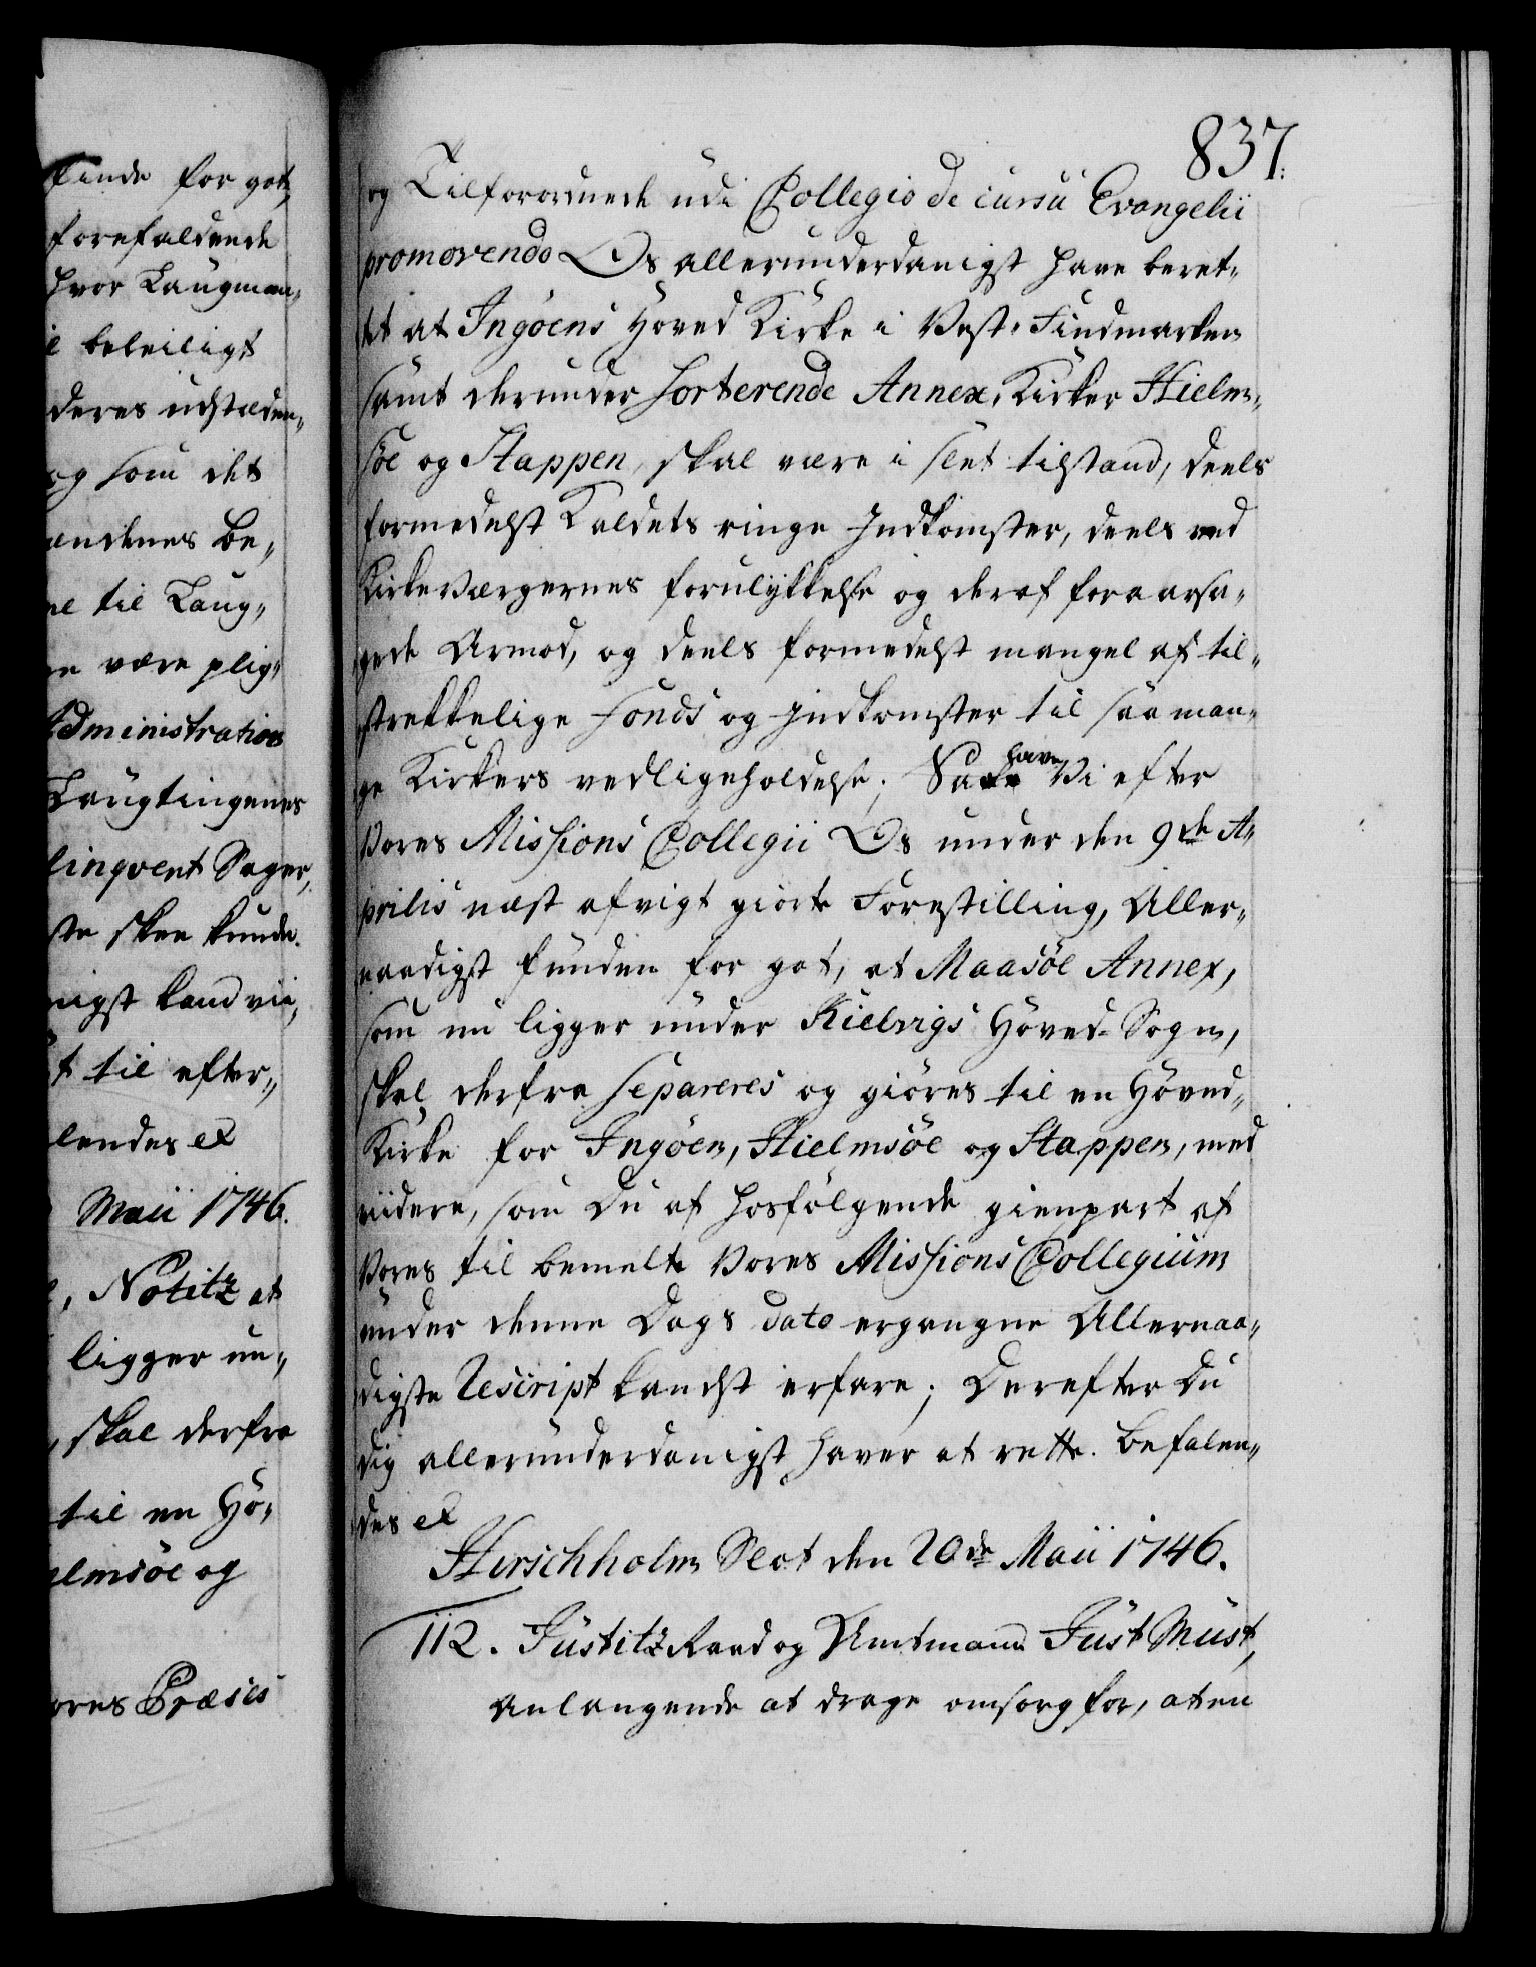 finde for got,
forefaldende
hvor Laugman„
beleiligt
deres udstæden„
og som det
ændenes Be„
til Laug„
være plig„
Administration
Laugtingenes
linqvent Sager,
skee kunde.
nigst kand vii„
til efter„
lendes et
Maii 1746.
Notitz at
ligger un„
skal derfra
til en Ho„
elmsöe og
ores Præses
837.
og Tilforordnede udi Collegio de cursu Evangelii
promovendo Os allerunderdanigst have beret„
tet at Ingöens Hoved Kirke i Vest-Findmarken
samt derunder sorterende Annex-Kirker Hielm„
söe og Stappen, skal være i slet tilstand, deels
formedelst Kaldets ringe Indkomster, deels ved
Kirkeværgernes forulykkelse og deraf foraarsa„
gede Armod, og deels formedelst mangel af til„
strekkelige fonds og indkomster til saa man„
ge Kirkers vedligeholdelse; Saa have Vi efter
Vores Missions Collegii Os under den 9de A„
prilis næst afvigt giorte Forestilling, Aller„
naadigst funden for got, at Maasöe Annex,
som nu ligger under Kielvigs Hoved-Sogn,
skal derfra separeres og giöres til en Hoved„
Kirke for Ingöen, Hielmsöe og Stappen, med
videre, som Du af hosfölgende gienpart af
Vores til bemelte Vores Missions Collegium
under denne Dags dato ergangne Allernaa„
digste Rescript kandst erfare; Derefter Du
dig allerunderdanigst haver at rette. Befalen„
des et
Hirschholm Slot den 20de Maii 1746.
112. Justitz Raad og Amtmand Just Must,
Anlangende at drage omsorg for, at en